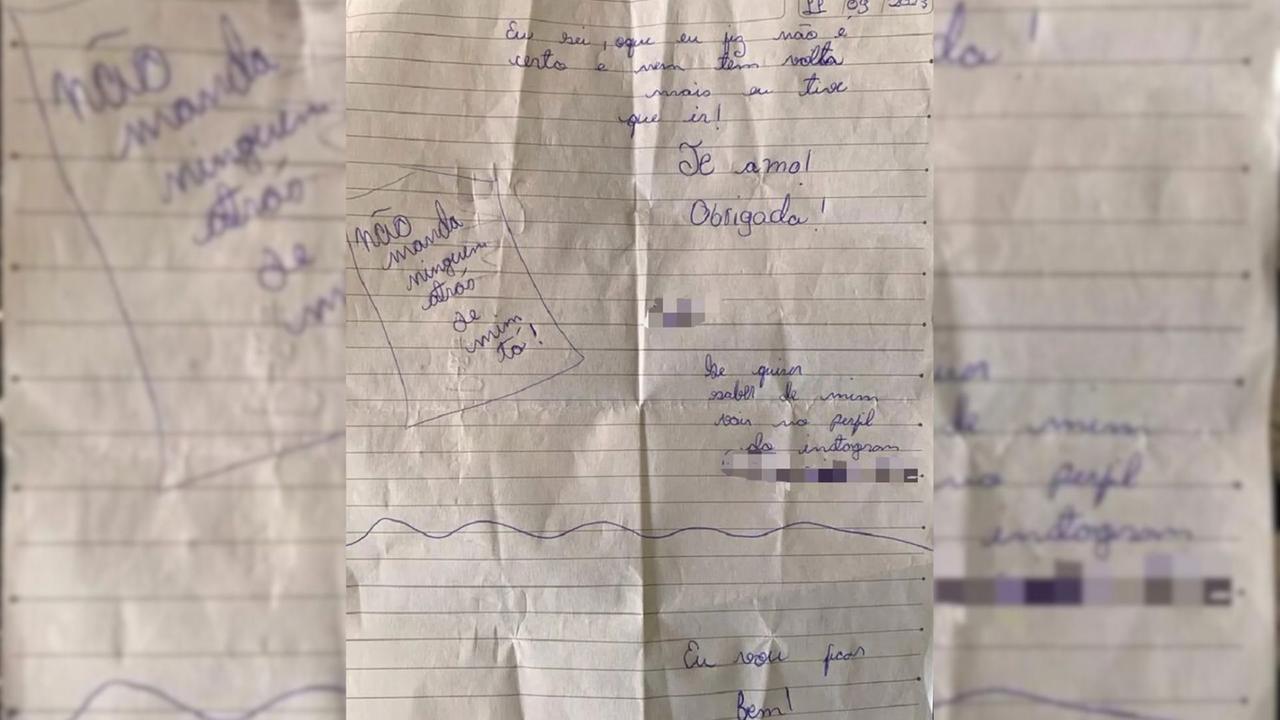 11 09 2023
Eu sei, oque eu fiz não é
certo e nem tem volta
mais eu tive
que ir!
Te amo!
Obrigada!
não
manda
ninguém
atrás
de
mim
tá!
Se quiser
saber de mim
vais no perfil
do instagram
Eu vou ficar
Bem!